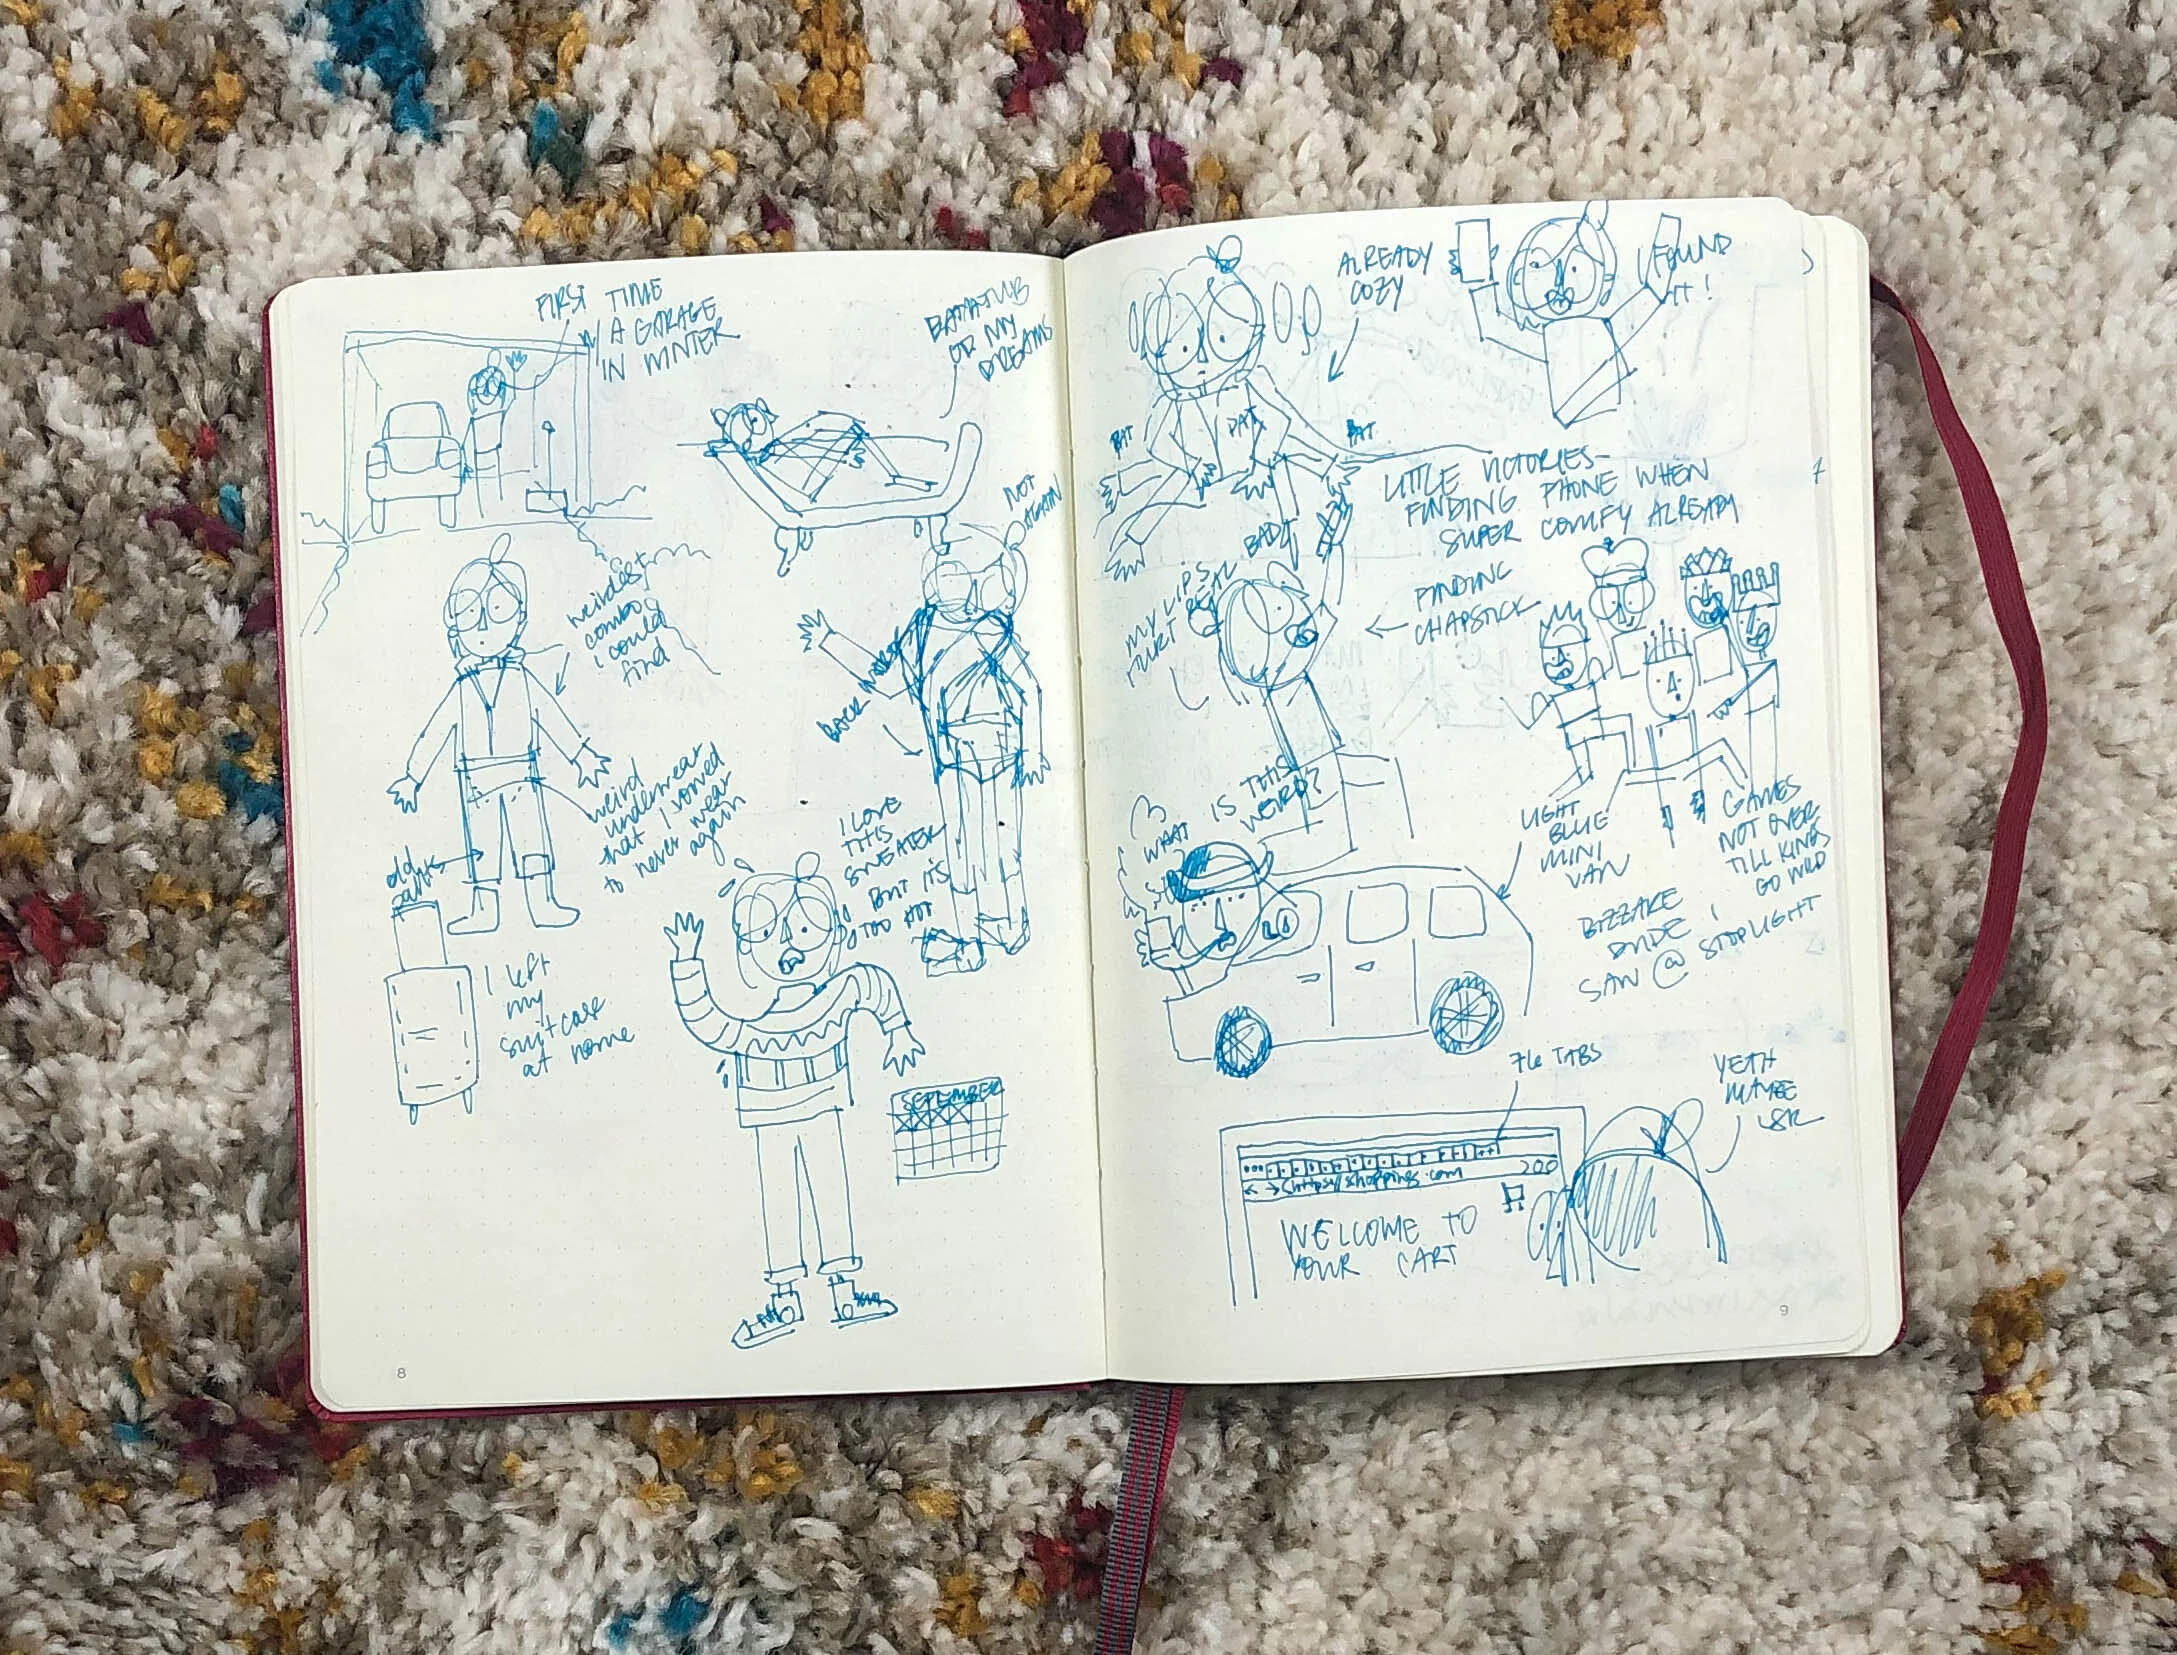 FIRST TIME
W/ A GARAGE
IN WINTER
BATHTUB
OF MY
DREAMS
weirdest
combo
i could
find
weird
underwear
that I vowed
to never wear
again
old
pants
I left
my
suitcase
at home
NOT
AGAIN
BACK
I LOVE
THIS
SWEATER
BUT IT'S
TOO HOT
SEPTEMBER
8
ALREADY
COZY
I FOUND
IT!
PAT
PAT
PAT
LITTLE VICTORIES-
FINDING PHONE WHEN
SUPER COMFY ALREADY
MY LIPS
HURT REAL
BAD!
FINDING
CHAPSTICK
4
GAMES
NOT OVER
TILL KINGS
GO WILD
WHAT
IS THIS
WEIRD?
LIGHT
BLUE
MINI
VAN
BIZZARE
DUDE I
SAW @ STOPLIGHT
76 TABS
https//shopping.com
200
WELCOME TO
YOUR CART
YEAH
MAYBE
9